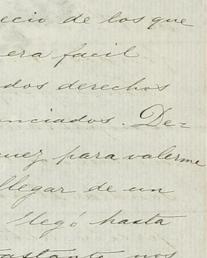 ecio de los que
era facil
dos derechos
nciados. De=
uez para valerme
llegar de un
llegó hasta
nos